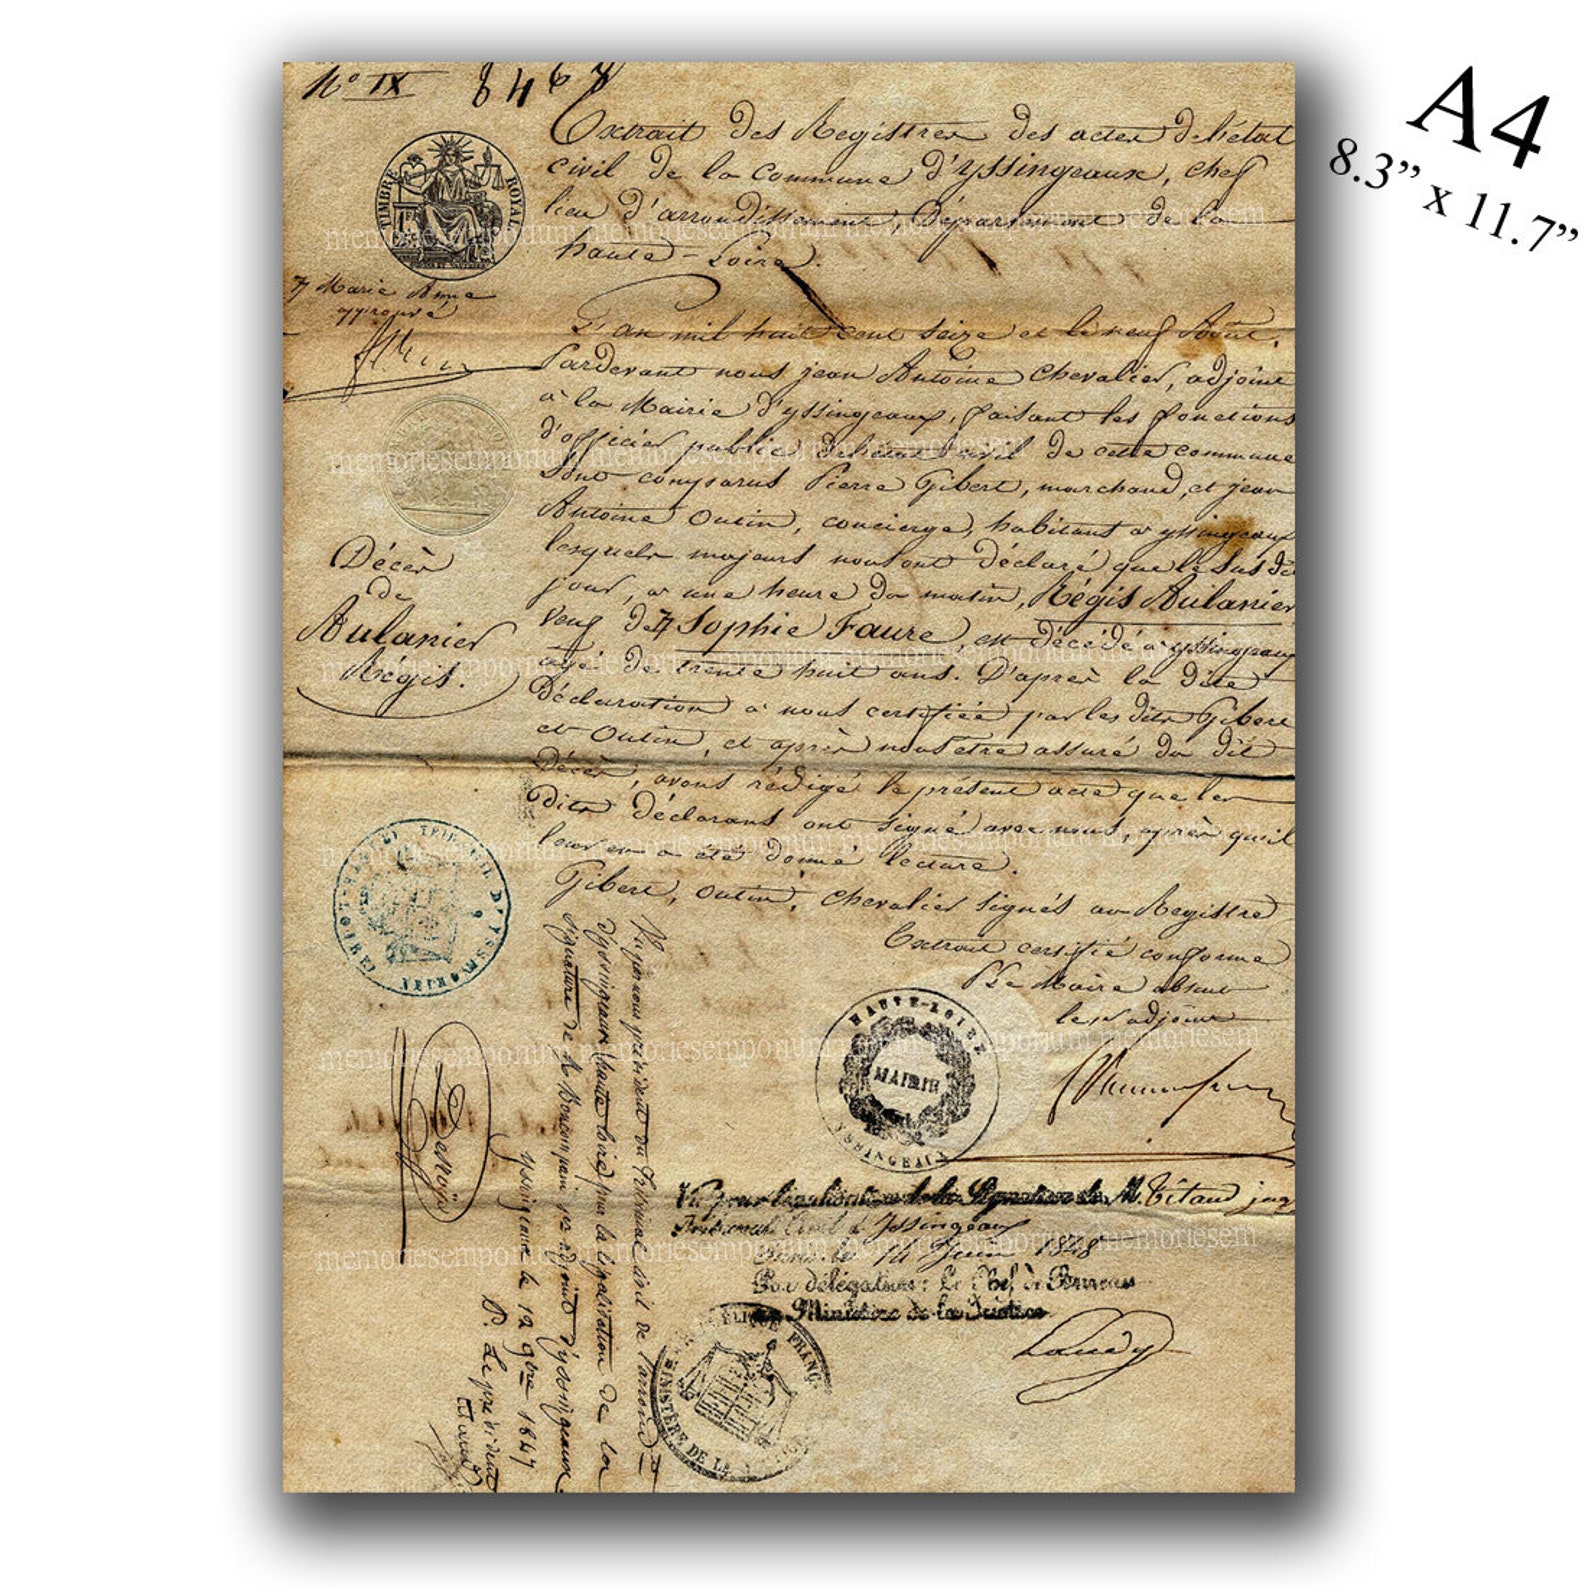 A4
8.3” x 11.7”
No IX 8467
Extrait des Registres des actes de l'état
civil de la Commune d'yssingeaux, chef
lieu d'arrondissement, Département de la
haute-Loire.
TIMBRE ROYAL
Marie Anne
approuvé
L'an mil huit cent seize et le neuf Août,
Pardevant nous jean Antoine Chevalier, adjoint
à la Mairie d'yssingeaux, faisant les fonctions
d'officier public de l'état civil de cette commune
Sont comparus Pierre Gibert, marchand, et jean
Antoine Outin, concierge, habitant a yssingeaux
lesquels majeurs nous ont déclaré que le susdit
jour, a une heure du matin, Régis Aulanier
veuf de Sophie Faure, est décédé a yssingeaux
âgé de trente huit ans. D'après la dite
déclaration a nous certifiée par les dits Gibert
et Outin, et après nous être assuré du dit
Décès, avons rédigé le présent acte que les
dits déclarans ont signé avec nous, après qu'il
leur en a été donné lecture.
Gibert, Outin, Chevalier signés au Registre
Extrait certifié conforme
Le Maire absent
l'adjoint
Décès
de
Aulanier
Régis.
TRIBUNAL D'YSSINGEAUX
HAUTE-LOIRE
MAIRIE
YSSINGEAUX
Vu par nous président du Tribunal civil de l'arrond
d'yssingeaux (haute Loire) pour la légalisation de la
signature de M adjoint d'yssingeaux
yssingeaux le 12 9bre 1847
P. Le président
Vu pour légalisation de la Signature de M. Titaud juge
Tribunal Civil d'Yssingeaux
Paris le 14 Juin 1848
Par délégation: Le Chef de Bureau
Ministère de la Justice
RÉPUBLIQUE FRANÇ
MINISTÈRE DE LA JUSTICE
memoriesemporium memoriesemporium memoriesem
memoriesemporium memoriesemporium memoriesem
memoriesemporium memoriesemporium memoriesem
memoriesemporium memoriesemporium memoriesem
memoriesemporium memoriesemporium memoriesem
memoriesemporium memoriesemporium memoriesem